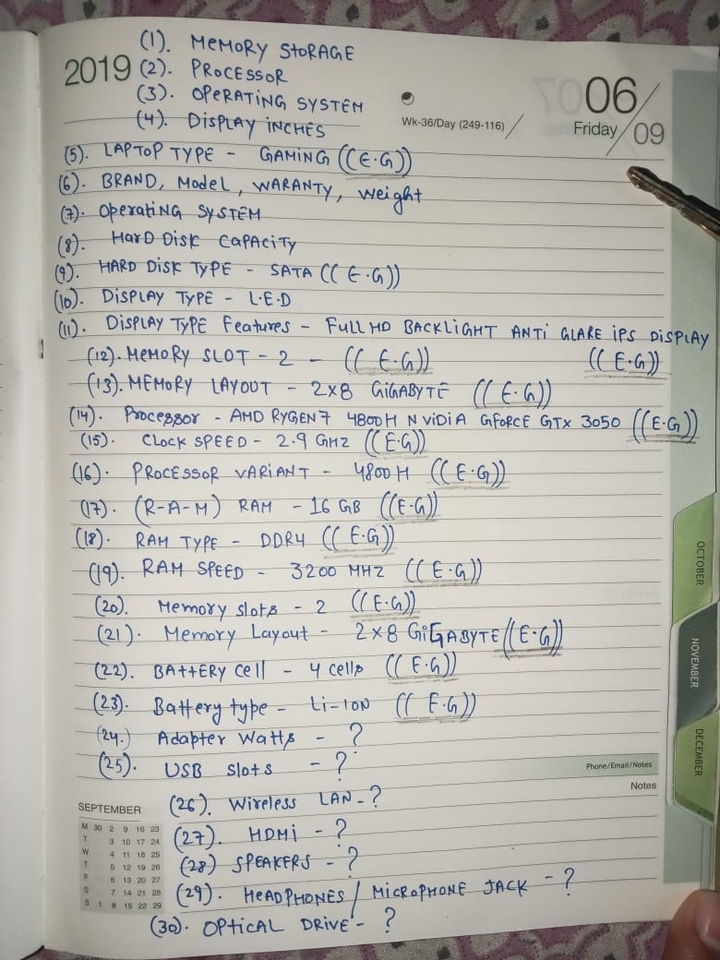 (1). MEMORY STORAGE
2019 (2). PROCESSOR
(3). OPERATING SYSTEM
(4). DISPLAY INCHES
Wk-36/Day (249-116)
06
Friday
09
(5). LAPTOP TYPE - GAMING ((E.G))
(6). BRAND, Model, WARANTY, weight
(7). OperatiNG SYSTEM
(8). HarD DISK CAPACITY
(9). HARD DISK TYPE - SATA ((E.G))
(10). DISPLAY TYPE - L.E.D
(11). DISPLAY TYPE Features - FULL HD BACKLIGHT ANTI GLARE iPS DISPLAY
(12). MEMORY SLOT - 2 - ((E.G)) ((E.G))
(13). MEMORY LAYOUT - 2x8 GIGABYTE ((E.G))
(14). Processor - AMD RYGEN 7 4800H NVIDIA GFORCE GTX 3050 ((E.G))
(15). CLOCK SPEED - 2.9 GHZ ((E.G))
(16). PROCESSOR VARIANT - 4800H ((E.G))
(17). (R-A-M) RAM - 16 GB ((E.G))
(18). RAM TYPE - DDR4 ((E.G))
(19). RAM SPEED - 3200 MHZ ((E.G))
(20). Memory slots - 2 ((E.G))
(21). Memory Layout - 2x8 GiGABYTE ((E.G))
(22). BATTERY Cell - 4 cells ((E.G))
(23). Battery type - Li-ION ((E.G))
(24.) Adapter Watts - ?
(25). USB slots - ?
Phone/Email/Notes
Notes
(26). Wireless LAN - ?
(27). HDMI - ?
(28) SPEAKERS - ?
(29). HEADPHONES / MICROPHONE JACK - ?
(30). OPTICAL DRIVE - ?
SEPTEMBER
M 30 2 9 16 23
T 3 10 17 24
W 4 11 18 25
T 5 12 19 26
F 6 13 20 27
S 7 14 21 28
S 1 8 15 22 29
OCTOBER
NOVEMBER
DECEMBER